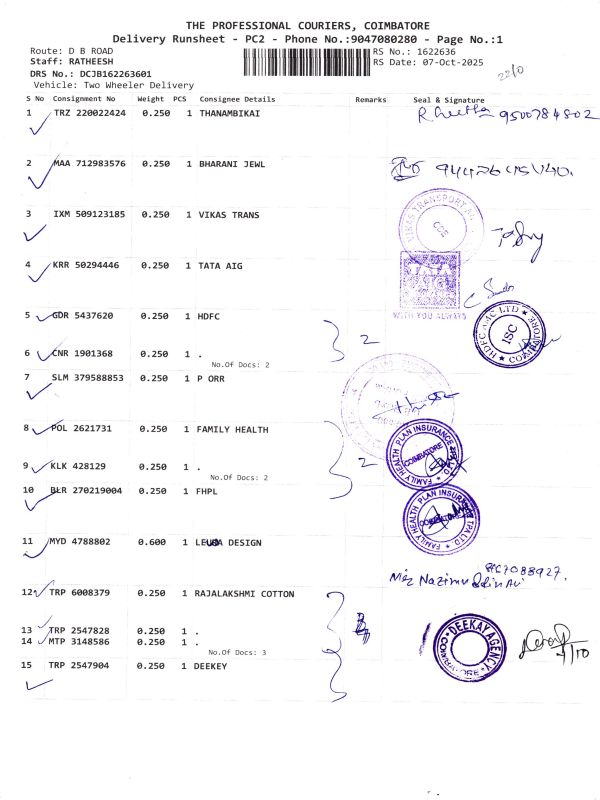 THE PROFESSIONAL COURIERS, COIMBATORE
Delivery Runsheet - PC2 - Phone No.:9047080280 - Page No.:1
Route: D B ROAD RS No.: 1622636
Staff: RATHEESH RS Date: 07-Oct-2025
DRS No.: DCJB162263601
Vehicle: Two Wheeler Delivery
S No Consignment No Weight PCS Consignee Details Remarks Seal & Signature
1 TRZ 220022424 0.250 1 THANAMBIKAI 9500784802
2 MAA 712983576 0.250 1 BHARANI JEWL
3 IXM 509123185 0.250 1 VIKAS TRANS
VIKAS TRANSPORT
CBE
4 KRR 50294446 0.250 1 TATA AIG
TATA
AIG
WITH YOU ALWAYS
5 GDR 5437620 0.250 1 HDFC
2
HDFC AMC LTD
ISC
COIMBATORE
6 CNR 1901368 0.250 1 .
No.Of Docs: 2
7 SLM 379588853 0.250 1 P ORR
8 POL 2621731 0.250 1 FAMILY HEALTH
FAMILY HEALTH PLAN INSURANCE TPA LTD
COIMBATORE
9 KLK 428129 0.250 1 .
2
No.Of Docs: 2
10 BLR 270219004 0.250 1 FHPL
FAMILY HEALTH PLAN INSURANCE TPA LTD.
COIMBATORE
11 MYD 4788802 0.600 1 DESIGN
12 TRP 6008379 0.250 1 RAJALAKSHMI COTTON
13 TRP 2547828 0.250 1 .
14 MTP 3148586 0.250 1 .
No.Of Docs: 3
DEEKAY AGENCY
COIMBATORE
15 TRP 2547904 0.250 1 DEEKEY